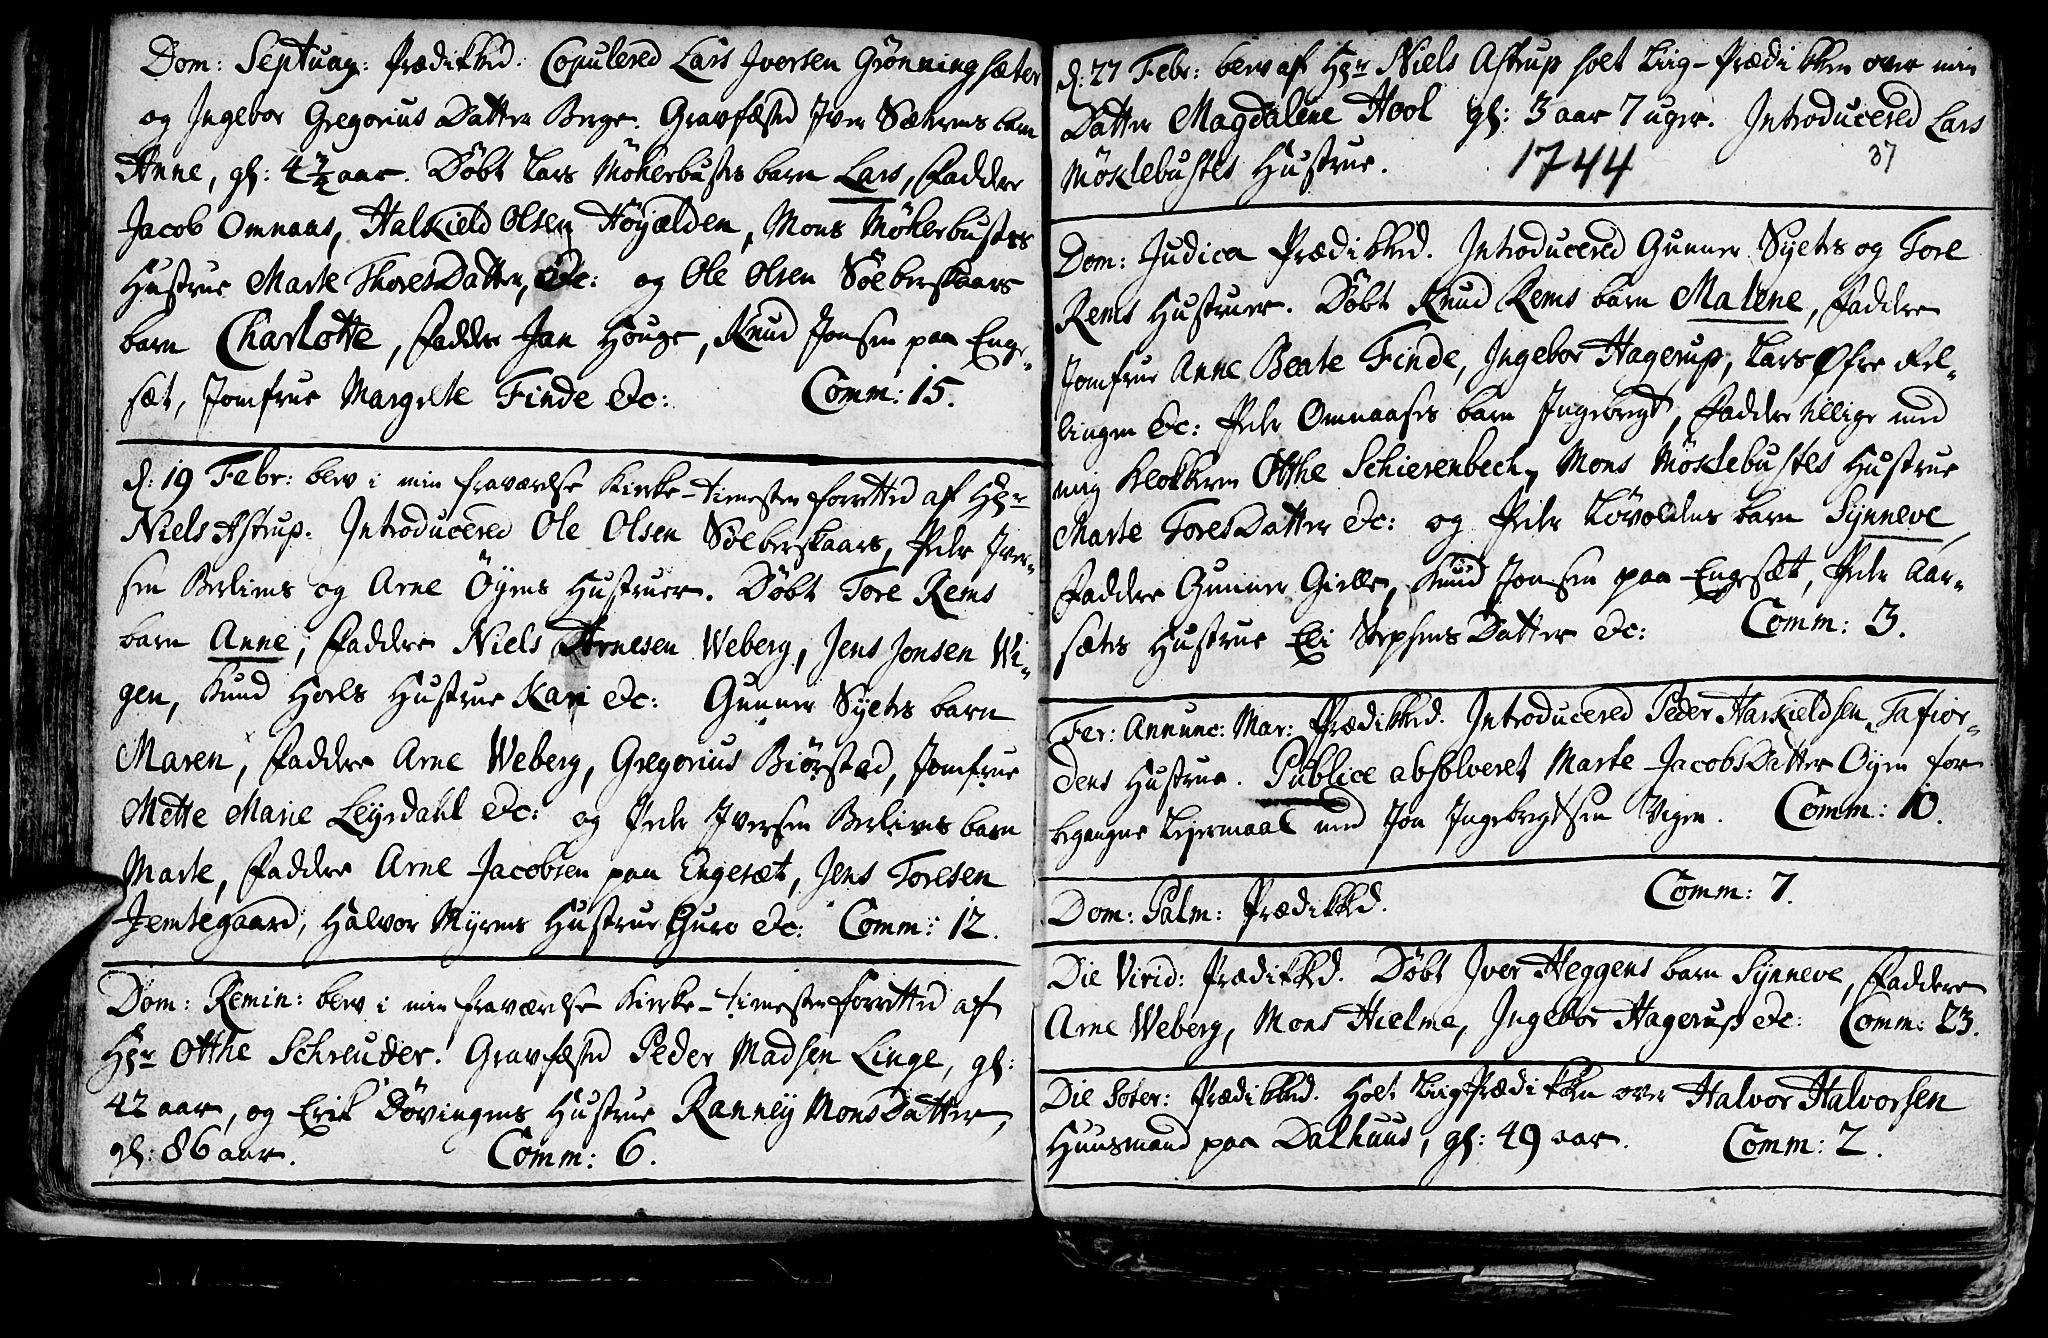 Dom: Septuag: Prædikked. Copulered Lars Jversen Grönningsæter
og Jngebor Gregorius Datter Berge. Gravfæsted Jver Sætrens barn
Anne, gl: 4 3/4 aar. Döbt Lars Möklerbusts barn Lars, Faddre
Jacob Omnaas, Halkield Olsen Höyælden, Mons Möklerbustes
Hustrue Marte Thores Datter, &c: og Ole Olsen Sölberskaars
barn Charlotte, Faddre Jan Houge, Knud Jonsen paa Enge-
sæt, Jomfrue Margrete Finde &c: Comm: 15.
d: 19 Febr: blev i min fraværelse Kirke-tienesten forrettet af Hr
Niels Astrup. Introducered Ole Olsen Sölberskaars, Peder Jver-
sen Berlivns og Arne Öyens Hustruer. Döbt Tore Rems
barn Anne, Faddre Niels Arnesen Weberg, Jens Jonsen Wi-
gen, Knud Hoels Hustrue Kari &c: Gunner Syltes barn
Maren, Faddre Arne Weberg, Gregorius Biörstad, Jomfrue
Mette Marie Leyrdahl &c: og Peder Jversen Berlivns barn
Marte, Faddre Arne Jacobsen paa Engesæt, Jens Toresen
Jemtegaard, Halvor Myrens Hustrue Guro &c: Comm: 12.
Dom: Remin: blev i min fraværelse Kirke-tienesten forrettet af
Hr Otthe Schreuder. Gravfæsted Peder Madsen Linge, gl:
42 aar, og Erik Dövingens Hustrue Ranney Mons Datter,
gl: 86 aar. Comm: 6.
d: 27 Febr: blev af Hr Niels Astrup holt Liig-Prædikken over min
Datter Magdalene Hool gl: 3 aar 7 uger. Introducered Lars
Möklebustes Hustrue. 1744 37
Dom: Judica Prædikked. Introducered Gunner Syltes og Tore
Rems Hustruer. Döbt Knud Rems barn Malene, Faddre
Jomfrue Anne Beate Finde, Jngebor Hagerup, Lars Øfre Rel-
lingen &c: Peder Omnaases barn Jngebregt, Faddre tillige med
mig Klokkeren Otthe Schierenbech, Mons Möklebustes Hustrue
Marte Tores Datter &c: og Peder Lövoldens barn Synneve,
Faddre Gunner Gielle, Knud Jonsen paa Engesæt, Peder Aar-
sætes Hustrue Eli Stephens Datter &c: Comm: 3.
Fer: Annunc: Mar: Prædikked. Introducered Peder Haskieldsen Tafior-
dens Hustrue. Publice absolveret Marte Jacobs Datter Öyen for
begangne Lejermaal med Jon Jngebregtsen Vigen. Comm: 10.
Dom: Palm: Prædikked. Comm: 7.
Die Virid: Prædikked. Döbt Jver Heggens barn Synneve, Faddere
Arne Weberg, Mons Hielme, Jngebor Hagerup &c: Comm: 23.
Die Soter: Prædikked. Holt Liig Prædikken over Halvor Halvorsen
Huusmand paa Dalhuus, gl: 49 aar. Comm: 2.